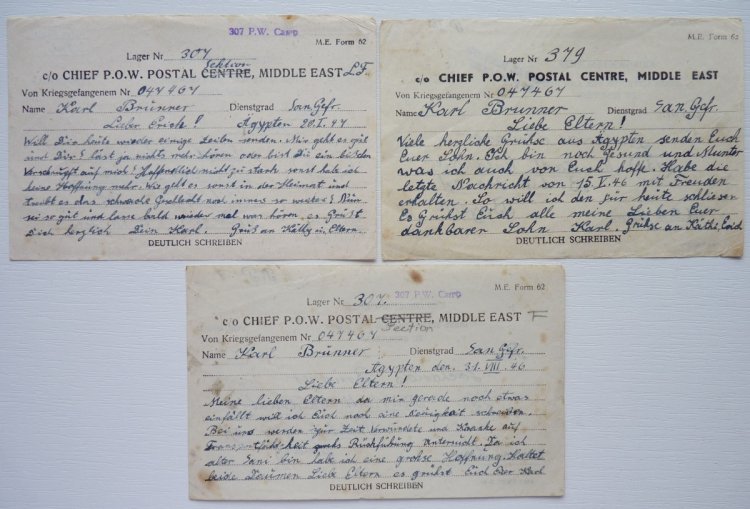 307 P.W. Camp
M.E. Form 62
Lager Nr 307
Sektion
c/o CHIEF P.O.W. POSTAL CENTRE, MIDDLE EAST
Von Kriegsgefangenem Nr 047467
Name Karl Brünner Dienstgrad San. Gefr.
Lieber Erich! Ägypten 20.I.47
Will Dir heute wieder einige Zeilen senden. Mir geht es gut
und Dir? Läst ja nichts mehr hören oder bist Du ein bißchen
auf mich? Hoffentlich nicht zu stark sonst habe ich
keine Hoffnung mehr. Wie geht es sonst in der Heimat und
treibt es das schwache noch immer so weiter? Nun
sei so gut und lasse bald wieder mal was hören, es Grüßt
Dich herzlich Dein Karl. Gruß an Käthy u. Eltern.
DEUTLICH SCHREIBEN
M.E. Form 62
Lager Nr 379
c/o CHIEF P.O.W. POSTAL CENTRE, MIDDLE EAST
Von Kriegsgefangenem Nr 047467
Name Karl Brunner Dienstgrad San. Gefr.
Liebe Eltern!
Viele herzliche Grühse aus Ägypten senden Euch
Euer Sohn. Ich bin noch Gesund und Munter
was ich auch von Euch hoffe. Habe die
letzte Nachricht von 15.V.46 mit Freuden
erhalten. So will ich den für heute schlieser
Es Grühst Euch alle meine Lieben Euer
dankbarer Sohn Karl. Grühse an Käthi,
DEUTLICH SCHREIBEN
Lager Nr 307. 307 P.W. Camp
M.E. Form 62
c/o CHIEF P.O.W. POSTAL CENTRE, MIDDLE EAST
Section
Von Kriegsgefangenem Nr 047467
Name Karl Brünner Dienstgrad San. Gefr.
Ägypten den. 31. VIII. 46
Liebe Eltern!
Meine lieben Eltern da mir gerade noch etwas
einfällt will ich Euch noch eine Neuigkeit schreiben.
Bei uns werden zur Zeit Verwundete und Kranke auf
Rückführung untersucht. Da ich
alter Sani bin habe ich eine grohse Hoffnung. Haltet
beide Daumen Liebe Eltern es grühst Euch Euer Karl
DEUTLICH SCHREIBEN